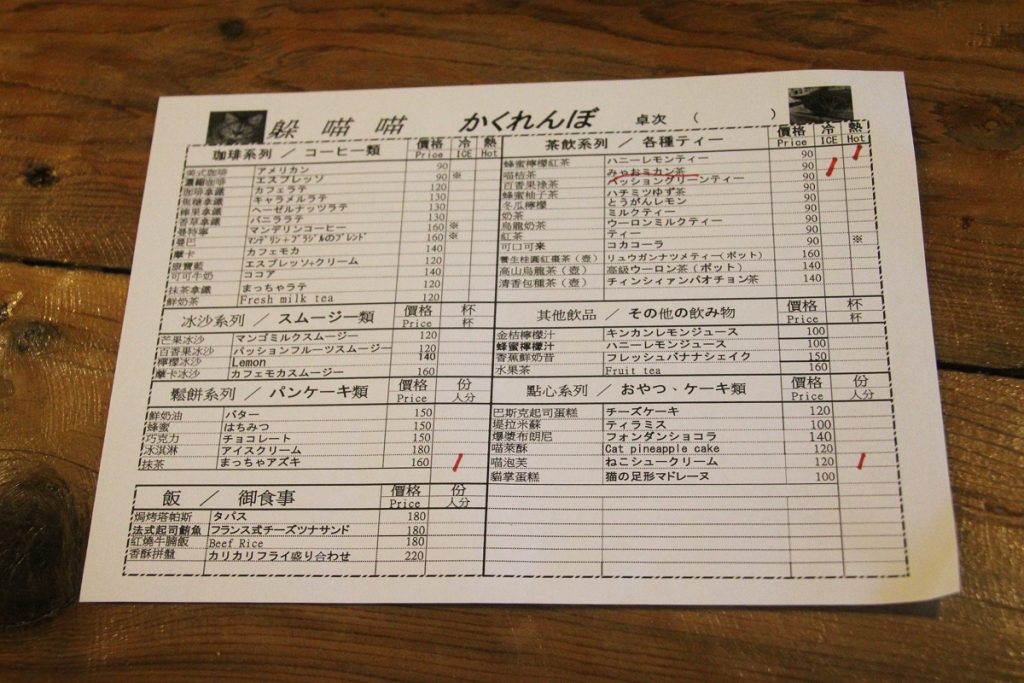 躲 喵 喵 かくれんぼ 卓次 ( )
珈琲系列 / コーヒー類 價格 Price 冷 ICE 熱 Hot
美式咖啡 アメリカン 90
濃縮咖啡 エスプレッソ 90 ※
咖啡拿鐵 カフェラテ 120
焦糖拿鐵 キャラメルラテ 130
榛果拿鐵 ヘーゼルナッツラテ 130
香草拿鐵 バニララテ 130
曼特寧 マンデリンコーヒー 160 ※
曼巴 マンデリン+ブラジルのブレンド 160 ※
摩卡 カフェモカ 140
康寶藍 エスプレッソ+クリーム 120
可可牛奶 ココア 140
抹茶拿鐵 まっちゃラテ 140
鮮奶茶 Fresh milk tea 120
冰沙系列 / スムージー類 價格 Price 杯 杯
芒果冰沙 マンゴミルクスムージー 120
百香果冰沙 パッションフルーツスムージー 120
檸檬冰沙 Lemon 140
摩卡冰沙 カフェモカスムージー 160
鬆餅系列 / パンケーキ類 價格 Price 份 人分
鮮奶油 バター 150
蜂蜜 はちみつ 150
巧克力 チョコレート 150
冰淇淋 アイスクリーム 180
抹茶 まっちゃアズキ 160
飯 / 御食事 價格 Price 份 人分
焗烤塔帕斯 タパス 180
法式起司鮪魚 フランス式チーズツナサンド 180
紅燒牛腩飯 Beef Rice 180
香酥拼盤 カリカリフライ盛り合わせ 220
茶飲系列 / 各種ティー 價格 Price 冷 ICE 熱 Hot
蜂蜜檸檬紅茶 ハニーレモンティー 90
喵桔茶 みゃおミカン茶 90
百香果綠茶 パッショングリーンティー 90
蜂蜜柚子茶 ハチミツゆず茶 90
冬瓜檸檬 とうがんレモン 90
奶茶 ミルクティー 90
烏龍奶茶 ウーロンミルクティー 90
紅茶 ティー 90
可口可樂 コカコーラ 90 ※
養生桂圓紅棗茶(壺) リュウガンナツメティー(ポット) 160
高山烏龍茶(壺) 高級ウーロン茶(ポット) 140
清香包種茶(壺) チィンシィァンパオチョン茶 140
其他飲品 / その他の飲み物 價格 Price 杯 杯
金桔檸檬汁 キンカンレモンジュース 100
蜂蜜檸檬汁 ハニーレモンジュース 100
香蕉鮮奶昔 フレッシュバナナシェイク 150
水果茶 Fruit tea 160
點心系列 / おやつ、ケーキ類 價格 Price 份 人分
巴斯克起司蛋糕 チーズケーキ 120
堤拉米蘇 ティラミス 100
爆漿布朗尼 フォンダンショコラ 140
喵萊酥 Cat pineapple cake 120
喵泡芙 ねこシュークリーム 120
貓掌蛋糕 猫の足形マドレーヌ 100